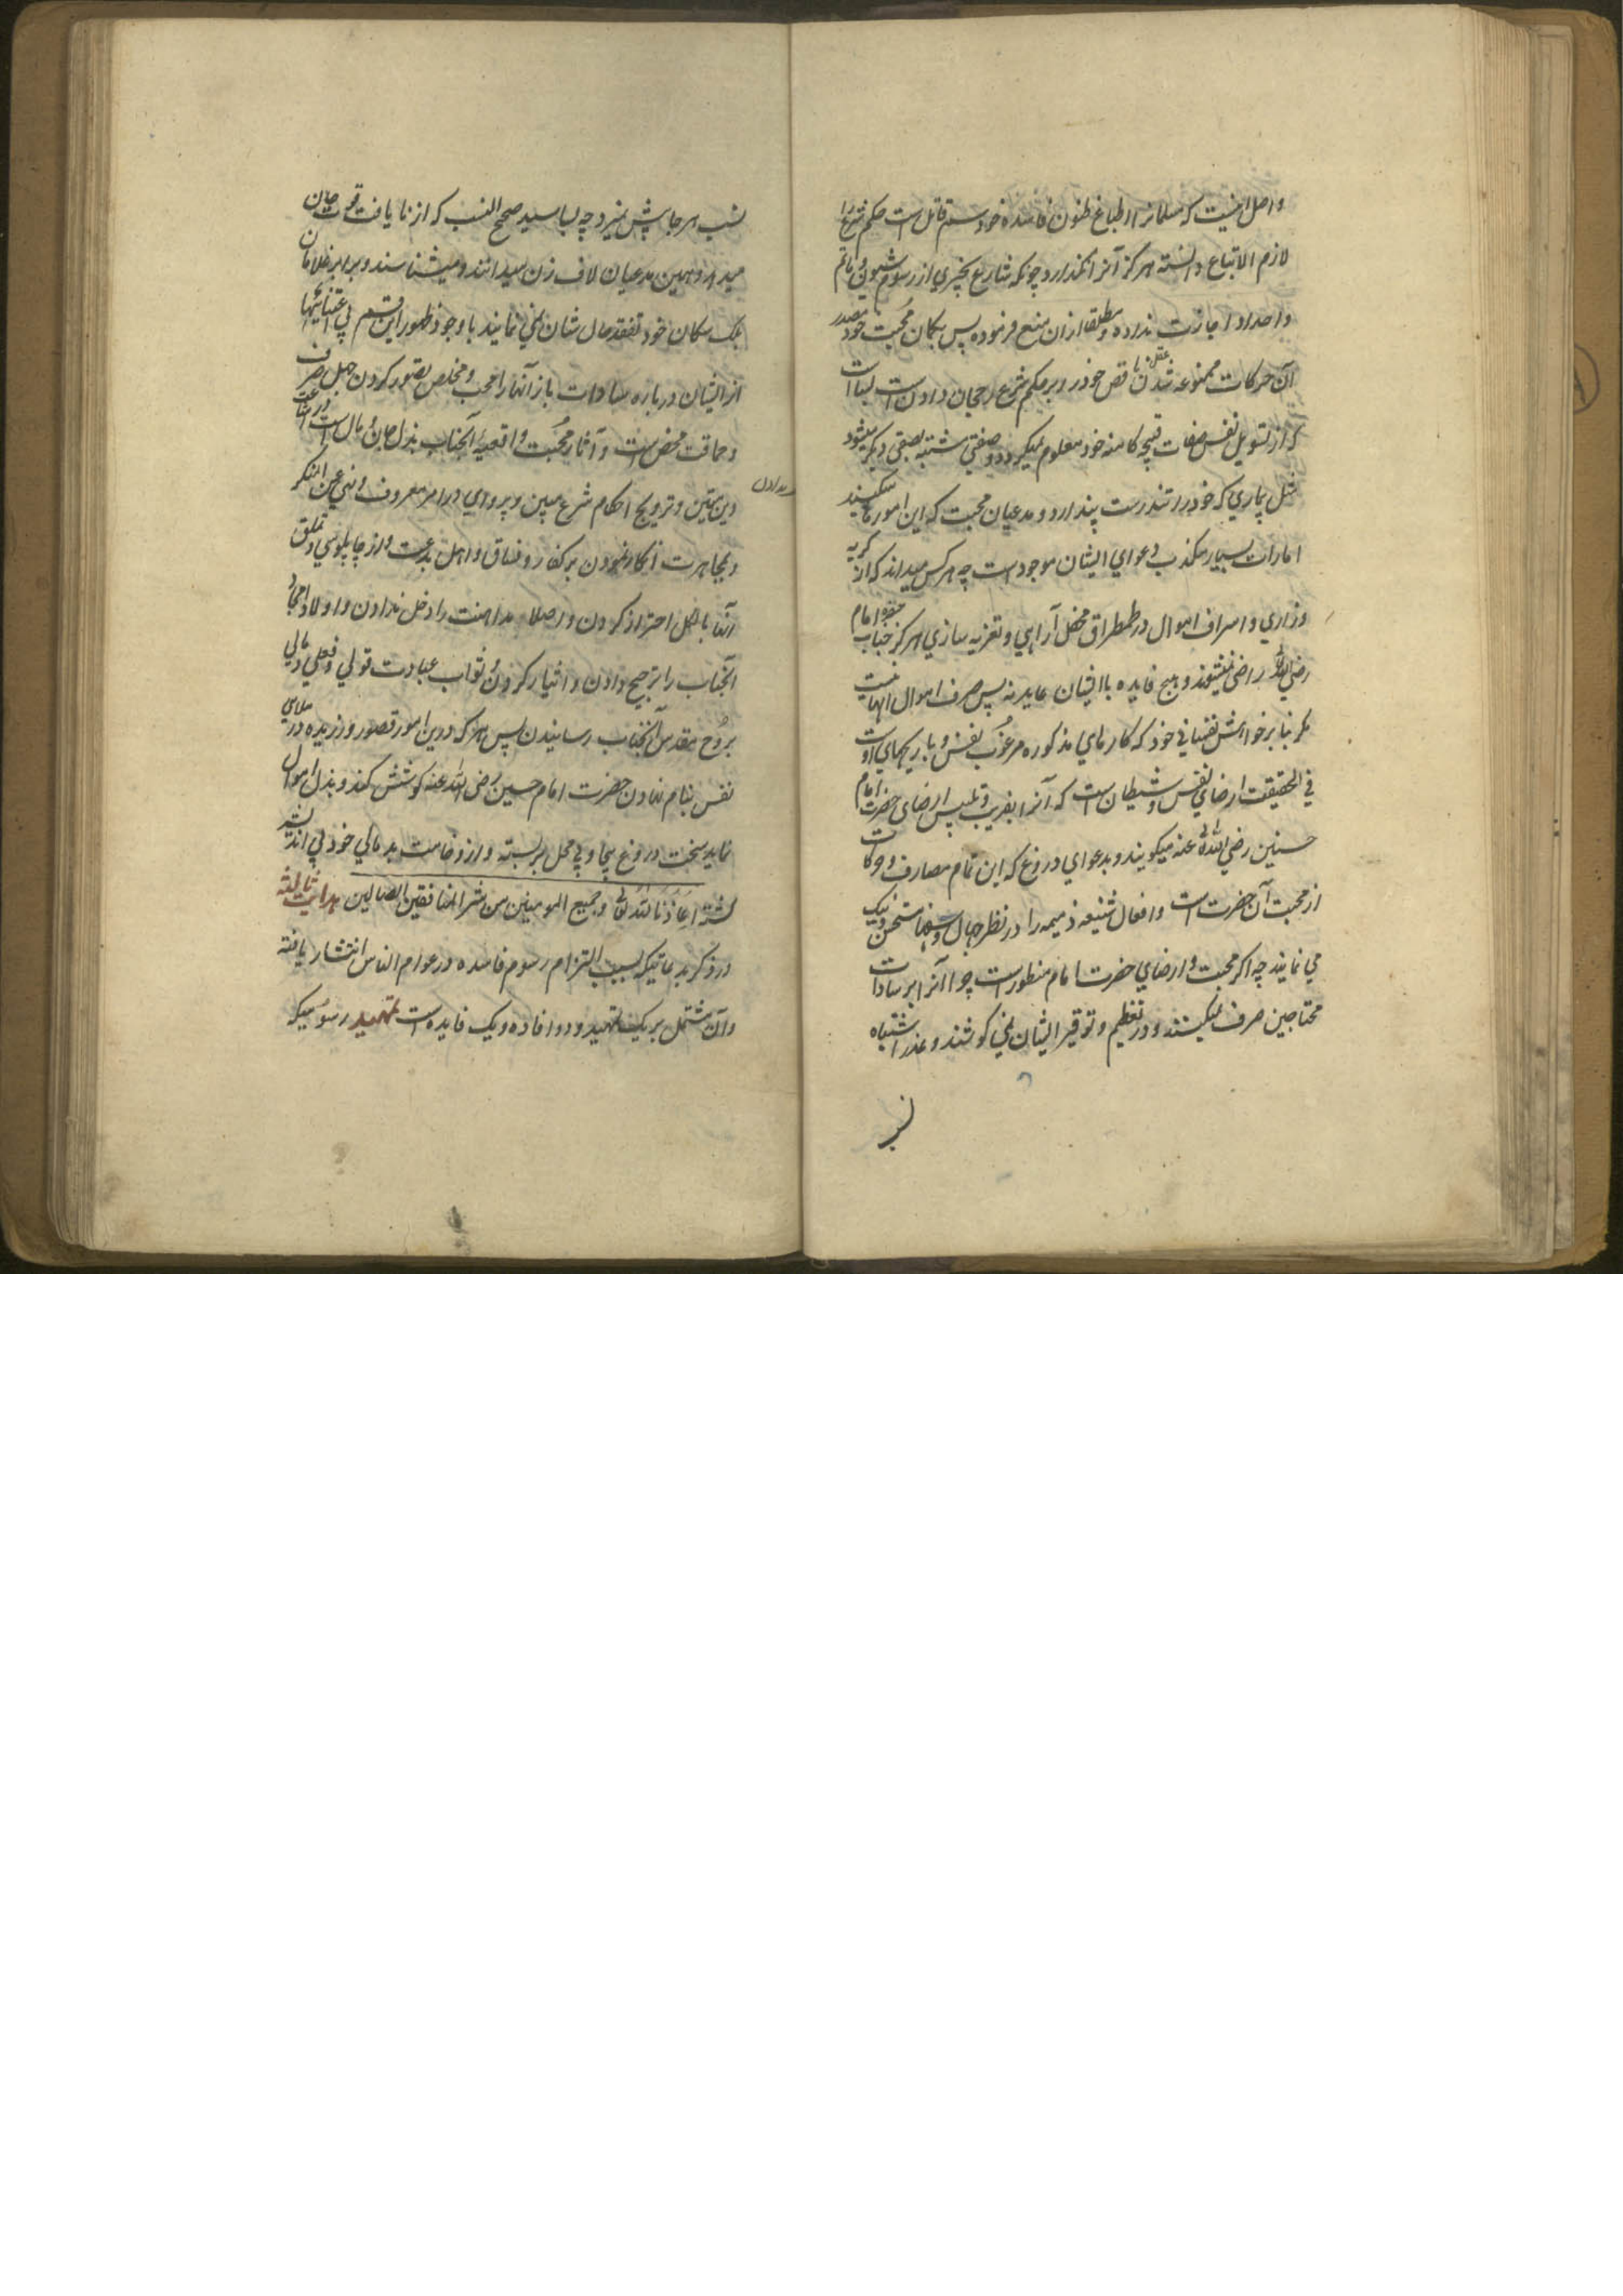 واصل اینست که مسلمانرا اتباع ظنون فاسده خود سم قاتل است حکم شرع را
لازم الاتباع دانسته هرگز آنرا نگذارد چونکه شارع بچیزی از رسوم شیون و ماتم
واحداد اجازت نداده و مطلقا ازان منع فرموده پس بگمان محبت خود مصدر
آن حرکات ممنوعه شدن عقل ناقص خود را بر حکم شرع رجحان دادن است بسا است
که از تسویل نفس صفات قبیحه کامنه خود معلوم نمیگردد و صفتی مشتبه بصفتی دیگر میشود
مثل بیماری که خود را تندرست پندارد و مدعیان محبت که این امورها میکنند
امارات بسیار مکذب دعوای ایشان موجود است چه هر کس میداند که از گریه
وزاری و اسراف اموال در طمطراق محفل آرایی و تعزیه سازی هرگز جناب حضرت امام
رضی الله راضی نمیشوند و هیچ فایده باایشان عاید نه پس صرف اموال آنها نیست
مگر بنا بر خواهش نفسانی خود که کارهای مذکوره مرغوب نفس و باریکیهای اوست
فی الحقیقت ارضای نفس و شیطان ست که آنرا بفریب و تلبیس ارضای حضرت امام
حسنین رضی الله عنه میگویند و بدعوای دروغ که این تمام مصارف و حرکات
از محبت آن حضرت است و افعال شنیعه ذمیمه را در نظر جهال و سفها مستحسن و نیک
می نمایند چه اگر محبت و ارضای حضرت امام منظور ست چرا آنرا بر سادات
محتاجین صرف نمیکنند و در تعظیم و توقیر ایشان نمی کوشند و عذر اشتباه
نسب
نسب هر جا پیش نمیرود چه بسا سید صحیح النسب که از نا یافت قوت جان
میدهد و همین مدعیان لاف زن میدانند و میشناسند و برابر غلامان
بلک سگان خود تفقد حال شان نمی نمایند با وجود ظهور این قسم بی اعتنائیها
از ایشان درباره سادات باز آنها را محب و مخلص تصور کردن جهل صرف
و حماقت محض است و آثار محبت واقعیه آنجناب بذل جان و مال است در اشاعت
دین متین و ترویج احکام شرع مبین و پیروی در امر معروف و نهی عن المنکر
و بمجاهرت انکار نمودن بر کفار و فساق و اهل بدعت و از چاپلوسی و تملق
آنها بالکل احتراز کردن و اصلا مداهنت را دخل ندادن و اولاد امجاد
آنجناب را ترجیح دادن و ایثار کردن و ثواب عبادت قولی و فعلی و مالی
بروح مقدس آنجناب رسانیدن پس هر که درین امور قصور ورزیده در
نفس بنام نهادن حضرت امام حسین رضی الله عنه کوشش کند و بذل اموال
نماید سخت دروغ بیجا و بی محل بربسته و از وخامت بد مالی خود بی اندیشه
گشته اعاذنا الله تعالی و جمیع المومنین من شر المنافقین الضالین هدایت ثالثه
در ذکر بدعاتیکه بسبب التزام رسوم فاسده در عوام الناس انتشار یافته
و آن مشتمل بر یک تمهید و دو افاده و یک فایده است تمهید رسومیکه